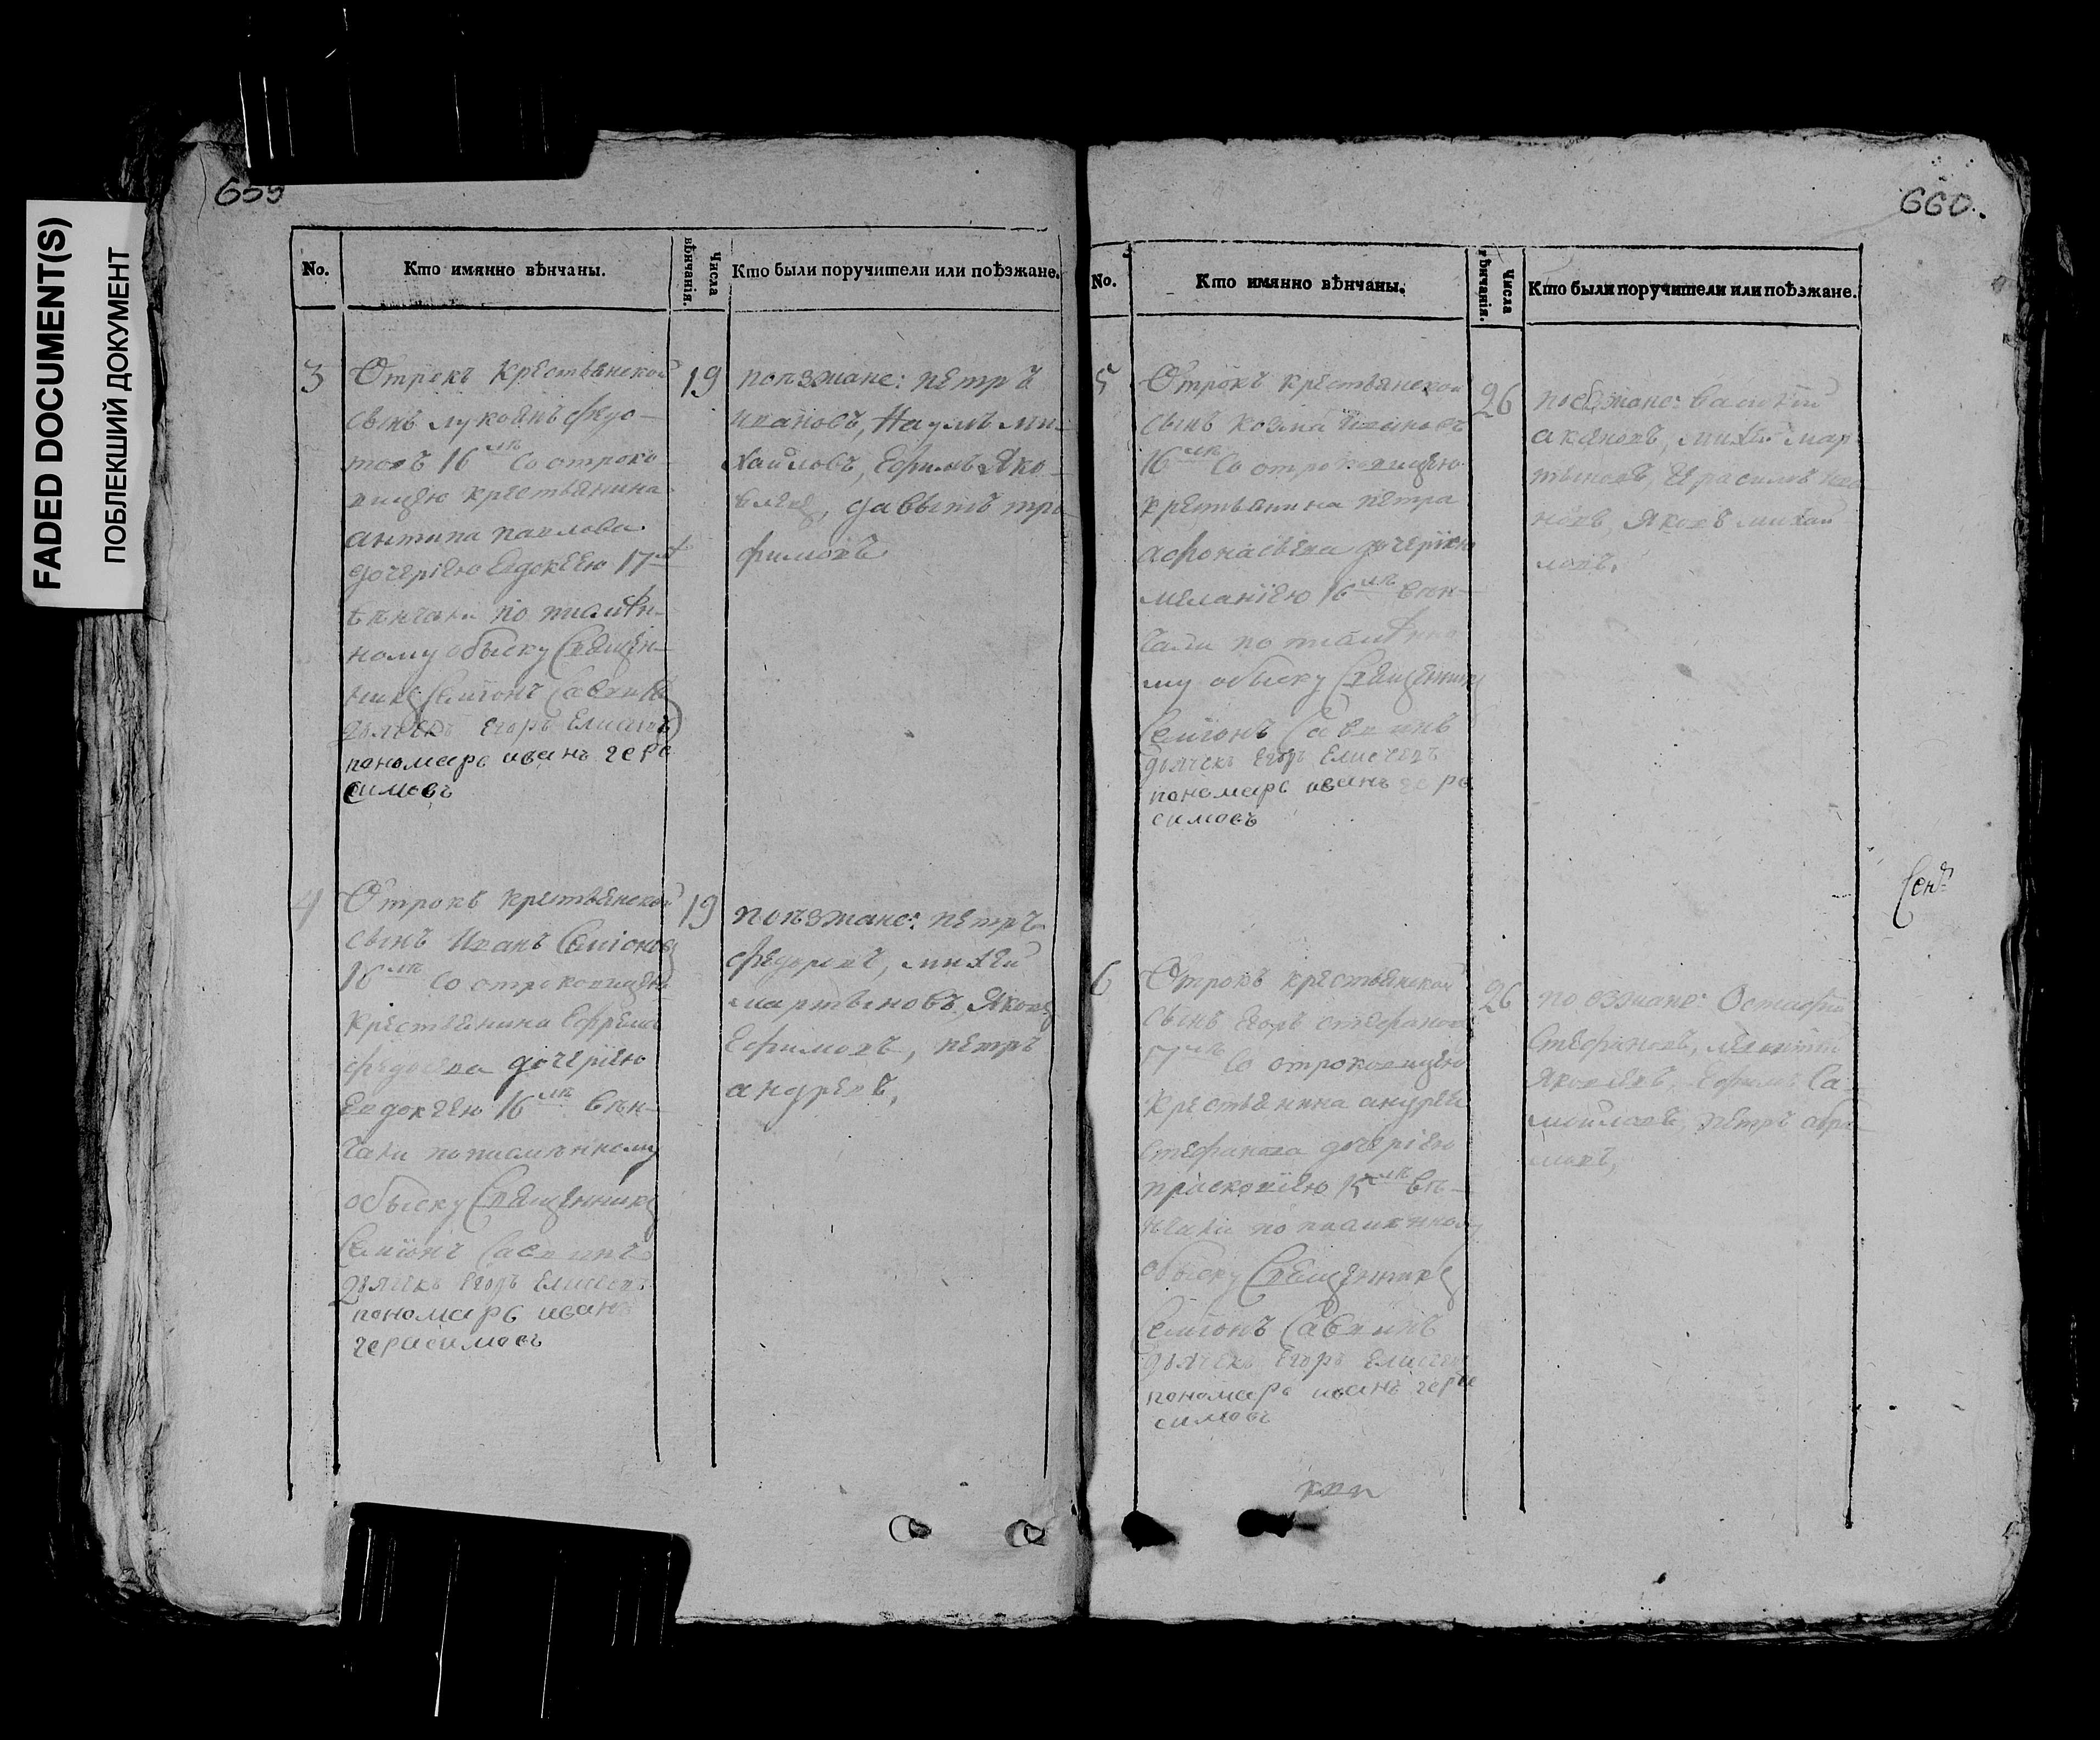 FADED DOCUMENT(S)
ПОБЛЕКШИЙ ДОКУМЕНТ
659
No.
Кто имянно вѣнчаны.
Числа вѣнчанія.
Кто были поручители или поѣзжане.
3
Отрокъ крестьянской
сынъ лукоянъ федо-
товъ 16 лѣ со отроко
вицею крестьянина
антипа павлова
дочерїею Евдокеею 17
вѣнчаны по писмѣн-
ному обыску Священ-
никъ Семїонъ Саввинъ
дьячекъ Егоръ Елисеевъ
пономарь иванъ гера
симовъ
19
поѣзжане: пѣтръ
ивановъ, Наумъ ми-
хайловъ, Ефимъ Яко-
влевъ, давытъ тро
фимовъ
4
Отрокъ крестьянской
сынъ Иванъ Семїоновъ
16 лѣ со отроковицею
крестьянина Ефрема
дочерїею
Евдокеею 16 лѣ вѣн-
чаны по писмѣнному
обыску Священникъ
Семїонъ Саввинъ
дьячекъ Егоръ Елисеевъ
пономарь иванъ
герасимовъ
19
поѣзжане: пѣтръ
федоровъ, михей
мартыновъ, Яковъ
Ефимовъ, пѣтръ
андреевъ,
660.
No.
Кто имянно вѣнчаны.
Числа вѣнчанія.
Кто были поручители или поѣзжане.
5
Отрокъ крестьянской
сынъ козма Ивановъ
16 лѣ со отроковицею
крестьянина пѣтра
афонасьева дочерїею
меланїею 16 лѣ вѣн-
чаны по писмѣнно
му обыску Священникъ
Семїонъ Саввинъ
дьячекъ Егоръ Елисеевъ
пономарь иванъ гера
симовъ
26
поѣзжане:
михей мар
тыновъ, Герасимъ ива
новъ, Яковъ михай
ловъ,
Сен
6
Отрокъ крестьянской
сынъ Егоръ стефановъ
17 лѣ со отроковицею
крестьянина андрея
стефанова дочерїею
прасковїею 15 лѣ вѣ-
нчаны по писмѣнному
обыску Священникъ
Семїонъ Саввинъ
дьячекъ Егоръ Елисеевъ
пономарь иванъ гера
симовъ
26
поѣзжане: Остафей
Стефановъ,
Яковлевъ, Ефимъ Са-
мойловъ, пѣтръ абра
мовъ,